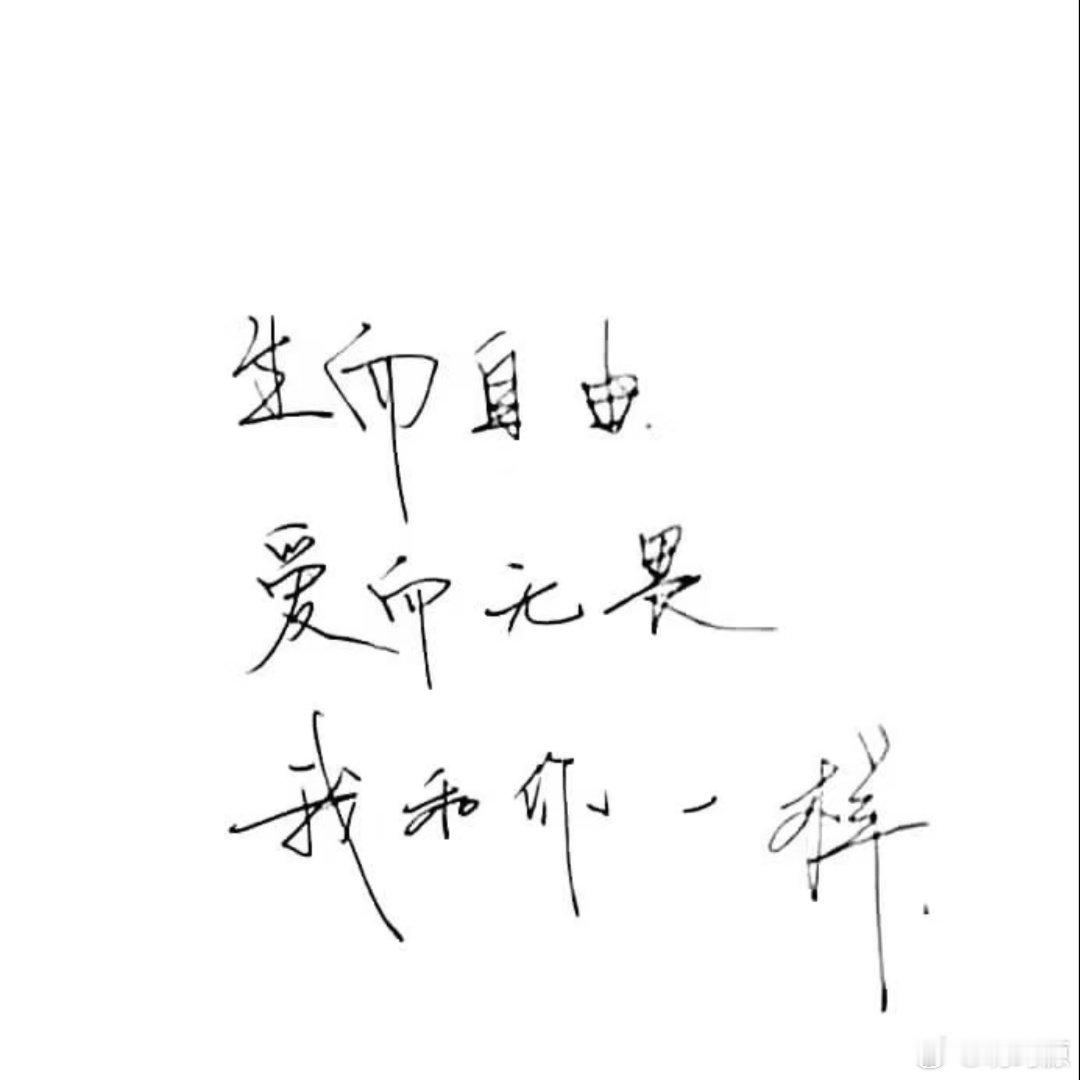 生而自由.
爱而无畏
我和你一样.